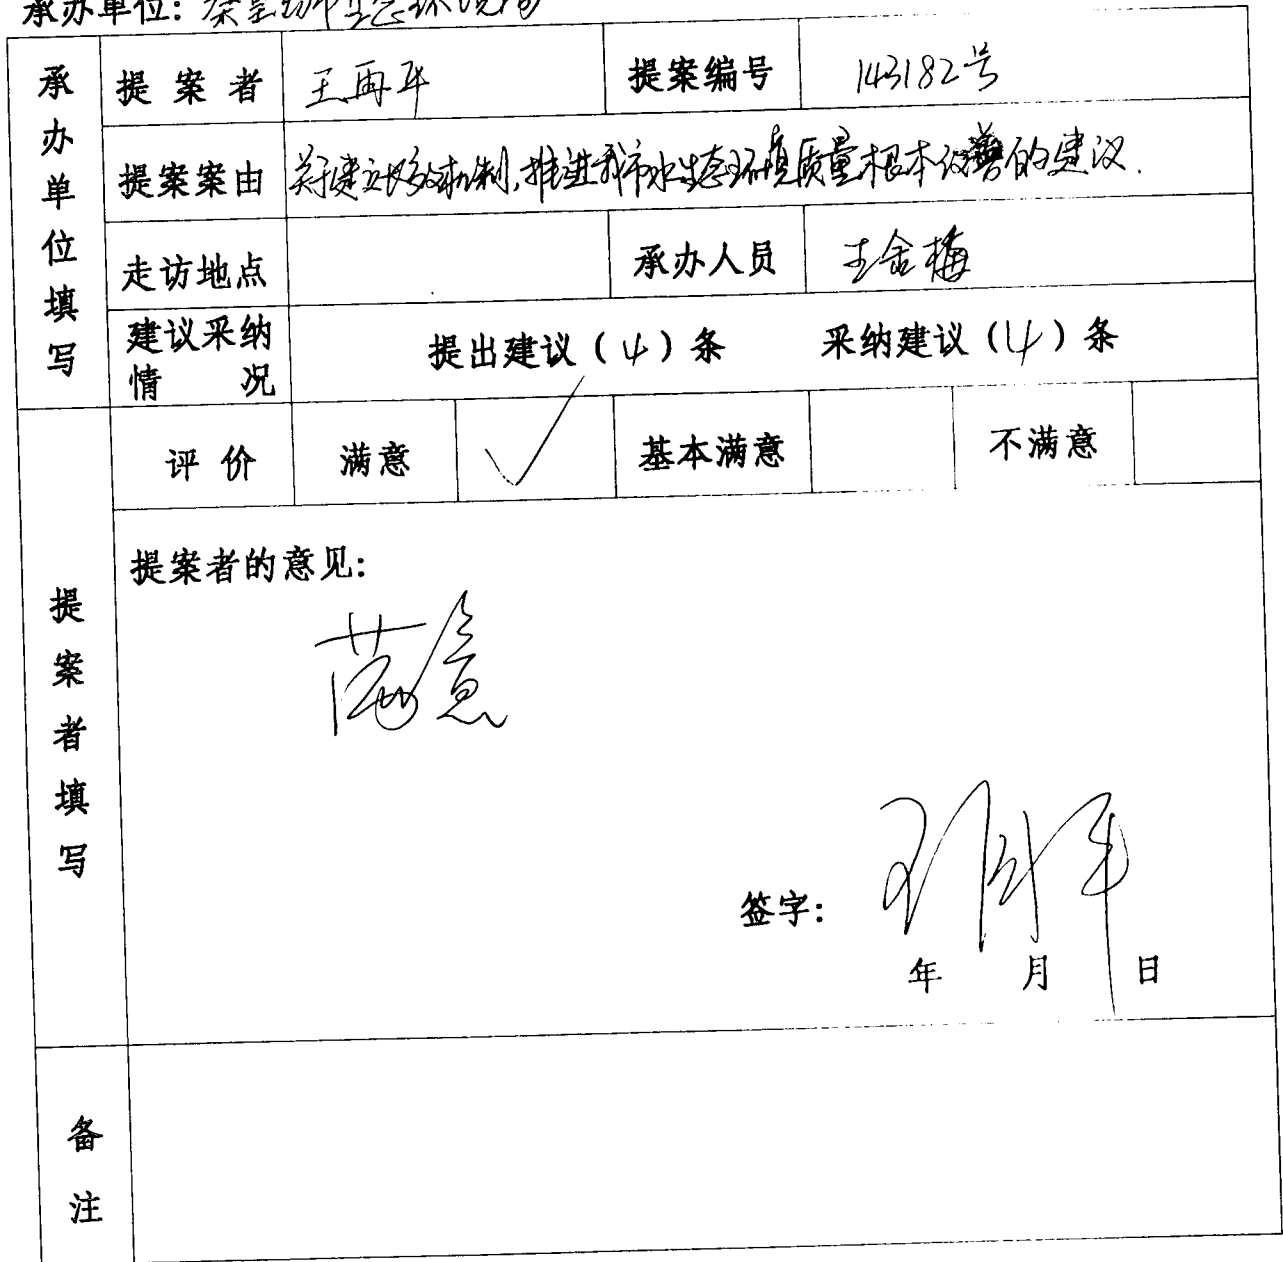 承办单位：秦皇岛市生态环境局
承办单位填写
提案者 王再平 提案编号 143182号
提案案由 关于建立长效机制,推进我市水生态环境质量根本改善的建议.
走访地点 承办人员 王金梅
建议采纳情况 提出建议（4）条 采纳建议（4）条
提案者填写
评价 满意 ✓ 基本满意 不满意
提案者的意见：
满意
签字： 王再平
年 月 日
备注